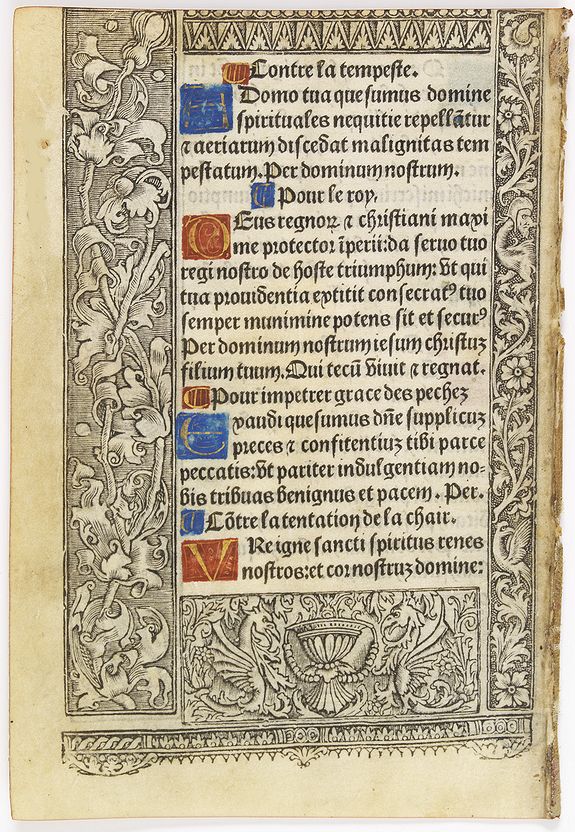 ¶ Contre la tempeste.
A Domo tua quesumus domine
spirituales nequitie repellãtur
⁊ aeriarum discedat malignitas tem
pestatum. Per dominum nostrum.
¶ Pour le roy.
DEus regnoꝝ ⁊ christiani maxi
me protector ĩperii: da seruo tuo
regi nostro de hoste triumphum: vt qui
tua prouidentia extitit consecratꝰ tuo
semper munimine potens sit et securꝰ
Per dominum nostrum iesum christuꝫ
filium tuum. Qui tecũ viuit ⁊ regnat.
¶ Pour impetrer grace des pechez
Exaudi quesumus dñe supplicuꝫ
preces ⁊ confitentiuꝫ tibi parce
peccatis: vt pariter indulgentiam no-
bis tribuas benignus et pacem. Per.
¶ Cõtre la tentation de la chair.
VRe igne sancti spiritus renes
nostros: et cor nostruꝫ domine: